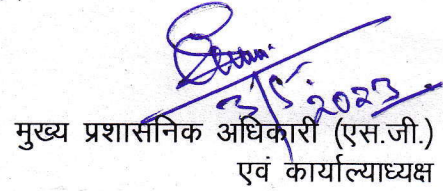 3/5/2023
मुख्य प्रशासनिक अधिकारी (एस.जी.)
एवं कार्याल्याध्यक्ष